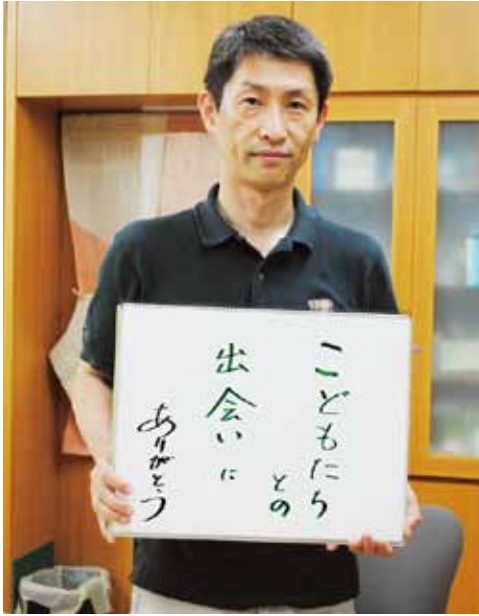 こどもたち
との
出会いに
ありがとう